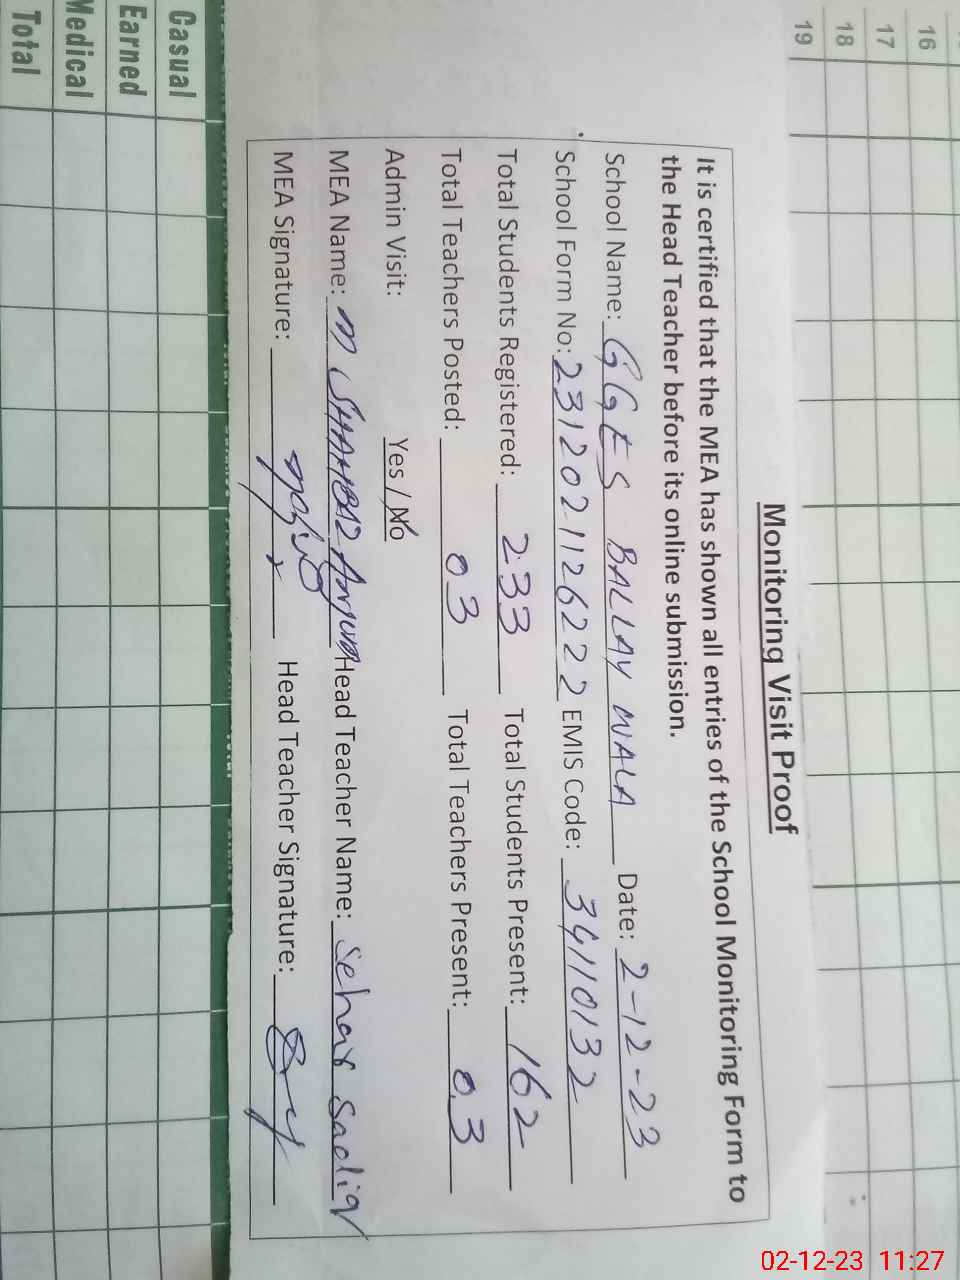 16
17
18
19
Monitoring Visit Proof
It is certified that the MEA has shown all entries of the School Monitoring Form to
the Head Teacher before its online submission.
School Name: GGES BALLAY WALA Date: 2-12-23
School Form No: 231202112622 EMIS Code: 34110132
Total Students Registered: 233 Total Students Present: 162
Total Teachers Posted: 03 Total Teachers Present: 03
Admin Visit: Yes / No
MEA Name: M Head Teacher Name: Sehar Sadiq
MEA Signature: Head Teacher Signature:
Casual
Earned
Medical
Total
02-12-23 11:27